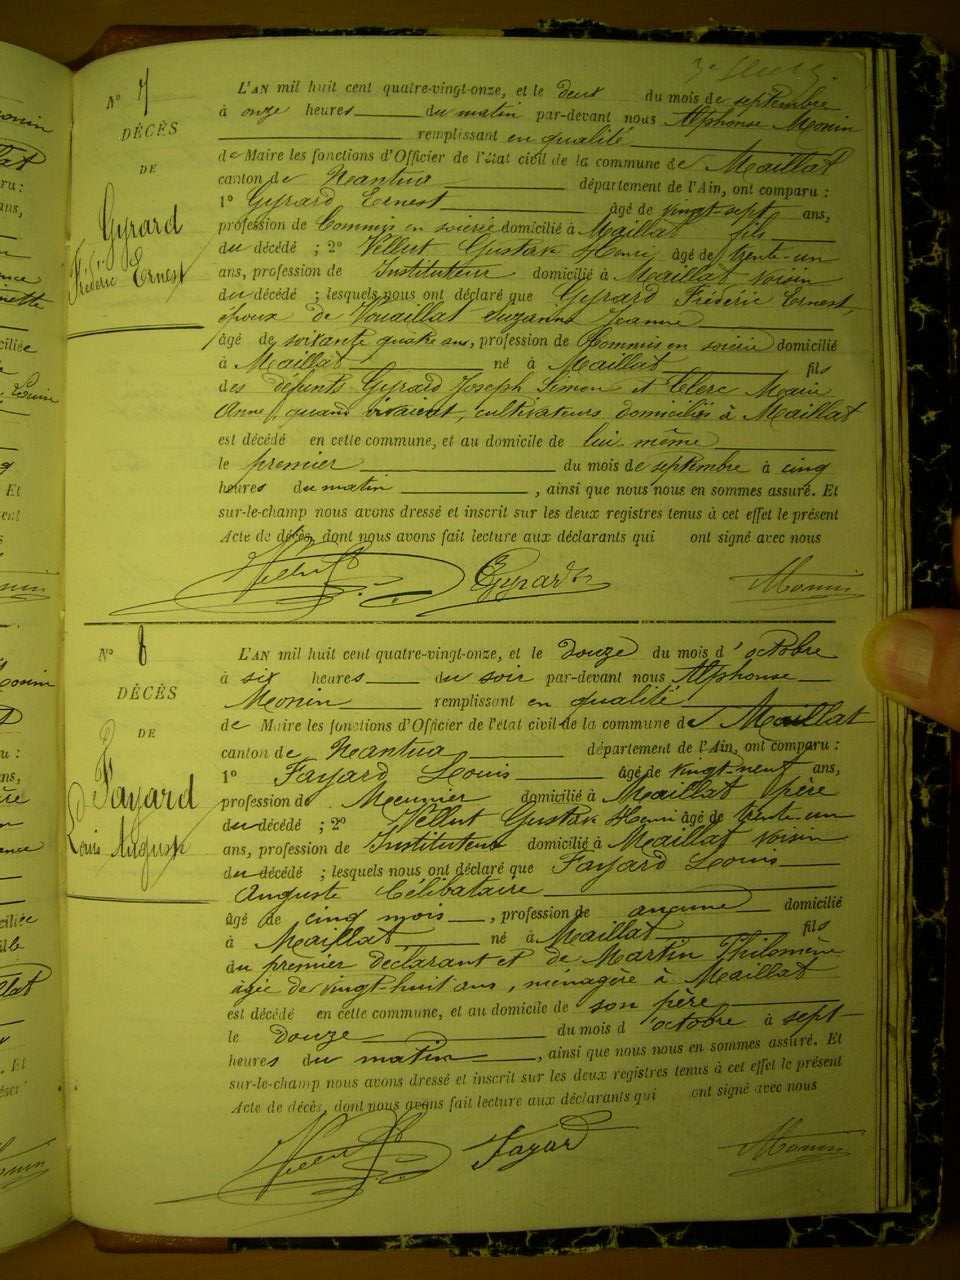 N° 7
DÉCÈS
DE
Gyrard
Frédéric Ernest
L'AN mil huit cent quatre-vingt-onze, et le deux du mois de septembre
à onze heures du matin par-devant nous Alphonse Monin
remplissant en qualité
de Maire les fonctions d'Officier de l'état civil de la commune de Maillat
canton de Nantua département de l'Ain, ont comparu :
1° Gyrard Ernest âgé de vingt-sept ans,
profession de Commis en soierie domicilié à Maillat fils
du décédé ; 2° Vellut Gustave Henri âgé de trente-un
ans, profession de Instituteur domicilié à Maillat voisin
du décédé ; lesquels nous ont déclaré que Gyrard Frédéric Ernest,
époux de Vouaillat Suzanne Jeanne
âgé de soixante quatre ans, profession de Commis en soierie domicilié
à Maillat né à Maillat fils
des défunts Gyrard Joseph Simon et Clerc Marie
Anne, quand vivaient, cultivateurs domiciliés à Maillat
est décédé en cette commune, et au domicile de lui même
le premier du mois de septembre à cinq
heures du matin , ainsi que nous nous en sommes assuré. Et
sur-le-champ nous avons dressé et inscrit sur les deux registres tenus à cet effet le présent
Acte de décès, dont nous avons fait lecture aux déclarants qui ont signé avec nous
Vellut Gyrard Monin
N° 8
DÉCÈS
DE
Fayard
Louis Auguste
L'AN mil huit cent quatre-vingt-onze, et le douze du mois d'octobre
à six heures du soir par-devant nous Alphonse
Monin remplissant en qualité
de Maire les fonctions d'Officier de l'état civil de la commune de Maillat
canton de Nantua département de l'Ain, ont comparu :
1° Fayard Louis âgé de vingt-neuf ans,
profession de Meunier domicilié à Maillat père
du décédé ; 2° Vellut Gustave Henri âgé de trente-un
ans, profession de Instituteur domicilié à Maillat voisin
du décédé ; lesquels nous ont déclaré que Fayard Louis
Auguste Célibataire
âgé de cinq mois , profession de aucune domicilié
à Maillat né à Maillat fils
du premier déclarant et de Martin Philomène
âgée de vingt-huit ans, ménagère à Maillat
est décédé en cette commune, et au domicile de son père
le douze du mois d'octobre à sept
heures du matin , ainsi que nous nous en sommes assuré. Et
sur-le-champ nous avons dressé et inscrit sur les deux registres tenus à cet effet le présent
Acte de décès, dont nous avons fait lecture aux déclarants qui ont signé avec nous
Vellut Fayard Monin